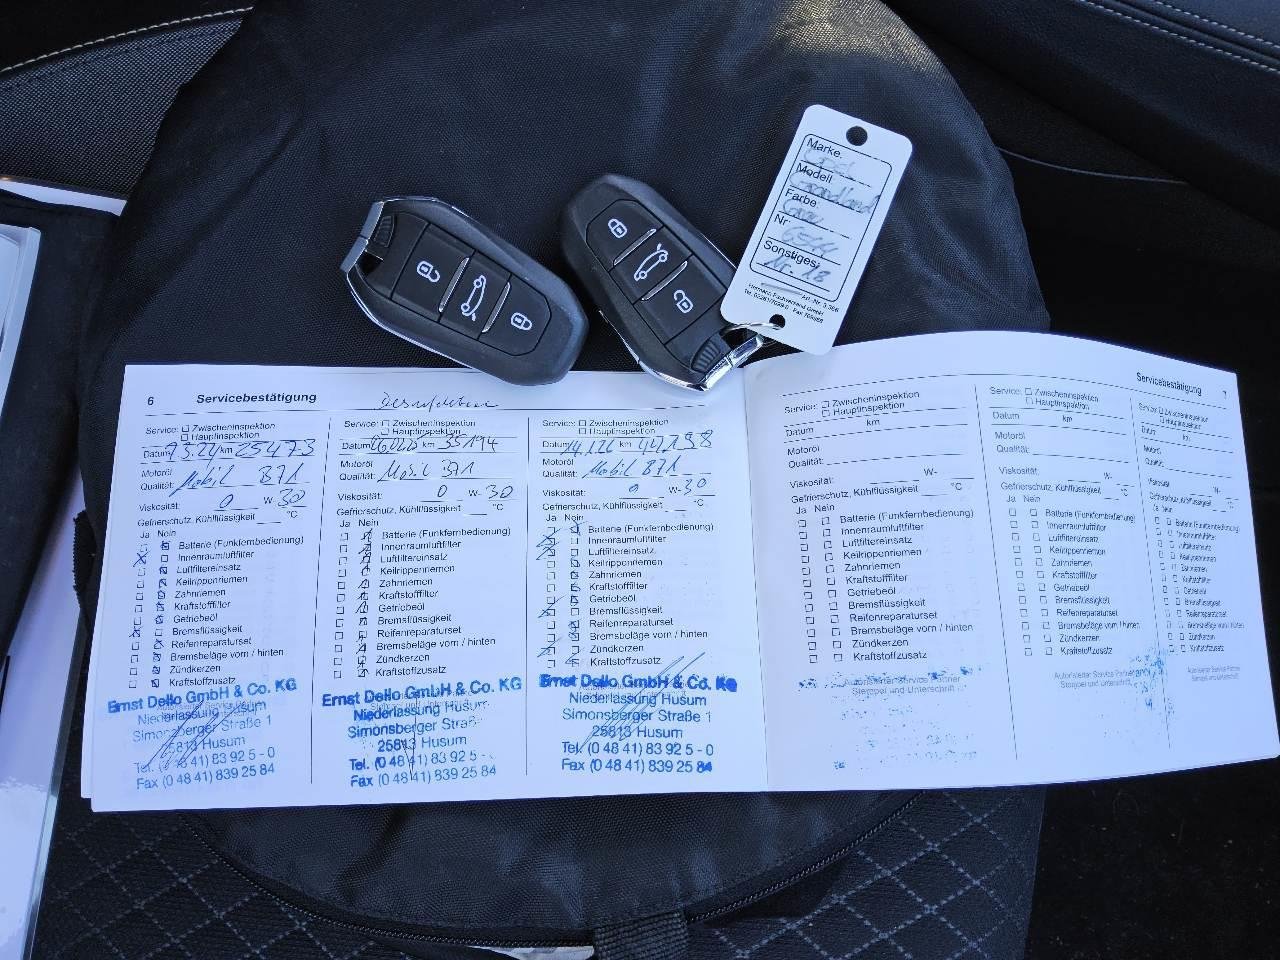 Marke:
Opel
Modell:
Grandland
Farbe:
Grau
Nr.
Sonstiges:
Nr. 18
Hermann Fachversand GmbH
6 Servicebestätigung
Service: Zwischeninspektion
Hauptinspektion
Datum km 25473
Motoröl
Qualität: Mobil B71
Viskosität: 0 W-30
Gefrierschutz, Kühlflüssigkeit °C
Ja Nein
Batterie (Funkfernbedienung)
Innenraumluftfilter
Luftfiltereinsatz
Keilrippenriemen
Zahnriemen
Kraftstofffilter
Getriebeöl
Bremsflüssigkeit
Reifenreparaturset
Bremsbeläge vorn / hinten
Zündkerzen
Kraftstoffzusatz
Ernst Dello GmbH & Co. KG
Niederlassung Husum
Simonsberger Straße 1
25813 Husum
Tel. (0 48 41) 83 92 5 - 0
Fax (0 48 41) 839 25 84
Service: Zwischeninspektion
Hauptinspektion
Datum 06.02.25 km 35194
Motoröl
Qualität: Mobil B71
Viskosität: 0 W-30
Gefrierschutz, Kühlflüssigkeit °C
Ja Nein
Batterie (Funkfernbedienung)
Innenraumluftfilter
Luftfiltereinsatz
Keilrippenriemen
Zahnriemen
Kraftstofffilter
Getriebeöl
Bremsflüssigkeit
Reifenreparaturset
Bremsbeläge vorn / hinten
Zündkerzen
Kraftstoffzusatz
Ernst Dello GmbH & Co. KG
Niederlassung Husum
Simonsberger Straße
25813 Husum
Tel. (0 48 41) 83 92 5 -
Fax (0 48 41) 839 25 84
Service: Zwischeninspektion
Hauptinspektion
Datum 14.1.26 km 47198
Motoröl
Qualität: Mobil B71
Viskosität: 0 W-30
Gefrierschutz, Kühlflüssigkeit °C
Ja Nein
Batterie (Funkfernbedienung)
Innenraumluftfilter
Luftfiltereinsatz
Keilrippenriemen
Zahnriemen
Kraftstofffilter
Getriebeöl
Bremsflüssigkeit
Reifenreparaturset
Bremsbeläge vorn / hinten
Zündkerzen
Kraftstoffzusatz
Ernst Dello GmbH & Co. KG
Niederlassung Husum
Simonsberger Straße 1
25813 Husum
Tel. (0 48 41) 83 92 5 - 0
Fax (0 48 41) 839 25 84
Servicebestätigung 7
Service: Zwischeninspektion
Hauptinspektion
Datum km
Motoröl
Qualität:
Viskosität: W-
Gefrierschutz, Kühlflüssigkeit °C
Ja Nein
Batterie (Funkfernbedienung)
Innenraumluftfilter
Luftfiltereinsatz
Keilrippenriemen
Zahnriemen
Kraftstofffilter
Getriebeöl
Bremsflüssigkeit
Reifenreparaturset
Bremsbeläge vorn / hinten
Zündkerzen
Kraftstoffzusatz
Autorisierter Service Partner
Stempel und Unterschrift
Service: Zwischeninspektion
Hauptinspektion
Datum km
Motoröl
Qualität:
Viskosität: W-
Gefrierschutz, Kühlflüssigkeit °C
Ja Nein
Batterie (Funkfernbedienung)
Innenraumluftfilter
Luftfiltereinsatz
Keilrippenriemen
Zahnriemen
Kraftstofffilter
Getriebeöl
Bremsflüssigkeit
Reifenreparaturset
Bremsbeläge vorn / hinten
Zündkerzen
Kraftstoffzusatz
Autorisierter Service Partner
Stempel und Unterschrift
Service: Zwischeninspektion
Hauptinspektion
Datum km
Motoröl
Qualität:
Viskosität: W-
Gefrierschutz, Kühlflüssigkeit °C
Ja Nein
Batterie (Funkfernbedienung)
Innenraumluftfilter
Luftfiltereinsatz
Keilrippenriemen
Zahnriemen
Kraftstofffilter
Getriebeöl
Bremsflüssigkeit
Reifenreparaturset
Bremsbeläge vorn / hinten
Zündkerzen
Kraftstoffzusatz
Autorisierter Service Partner
Stempel und Unterschrift